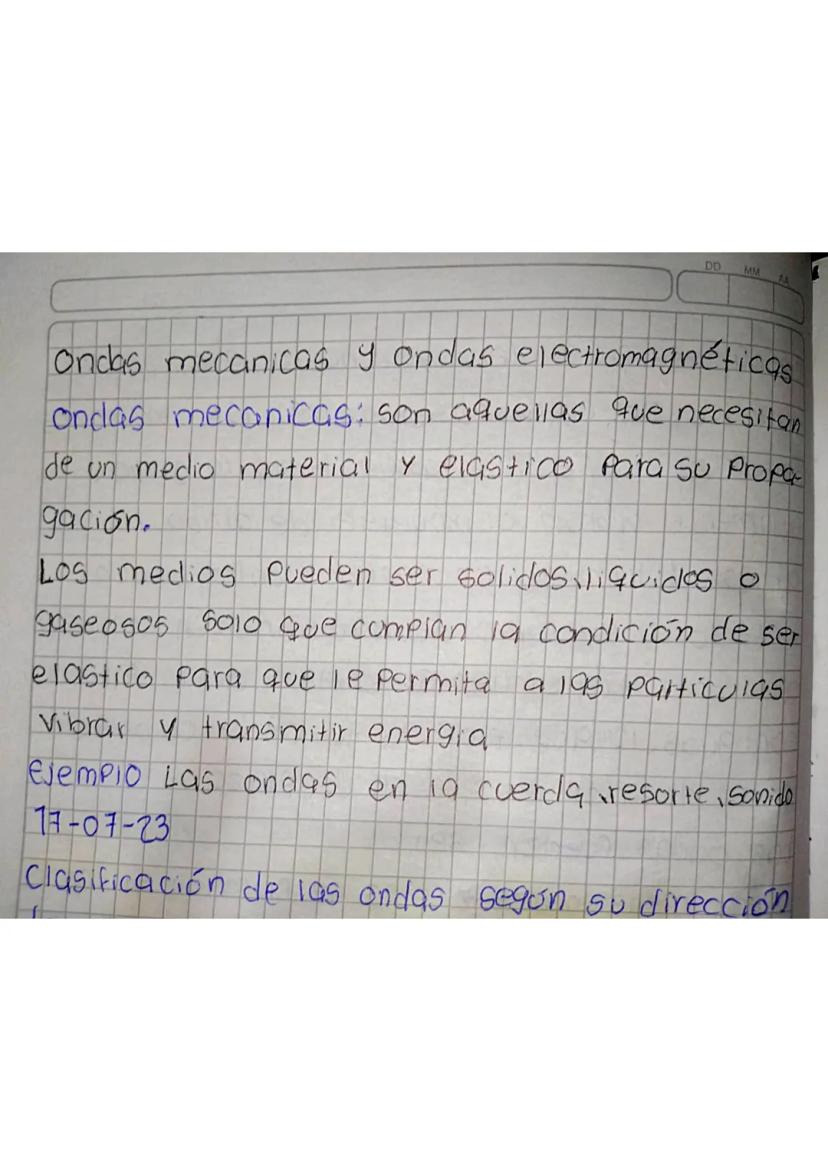 DD MM AA
Ondas mecanicas y ondas electromagnéticas
ondas mecanicas: son aquellas que necesitan
de un medio material y elastico para su propa-
gación.
Los medios pueden ser solidos, liquidos o
gaseosos solo que cumplan la condición de ser
elastico para que le permita a las particulas
vibrar y transmitir energia
Ejemplo Las ondas en la cuerda, resorte, sonido
17-07-23
Clasificación de las ondas según su dirección